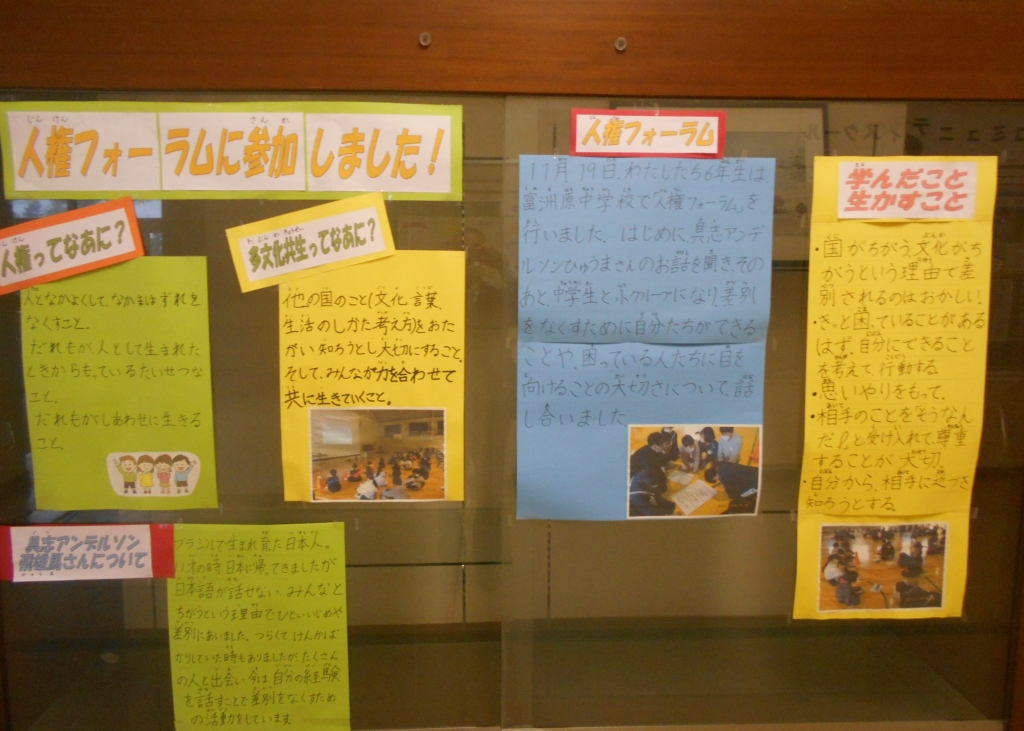 人権フォーラムに参加しました！
人権ってなあに？
人となかよくして、なかまはずれを
なくすこと。
だれもが、人として生まれた
ときからもっているたいせつな
こと。
だれもがしあわせに生きる
こと。
多文化共生ってなあに？
他の国のこと(文化、言葉、
生活のしかた、考え方)をおた
がい知ろうとし、大切にすること。
そして、みんなが力を合わせて
共に生きていくこと。
具志アンデルソン
さんについて
ブラジルで生まれ育った日本人。
才の時日本に帰ってきましたが
日本語が話せない、みんなと
ちがうという理由でひどいいじめや
差別にあいました。つらくてけんかば
かりしていた時もありましたが、たくさん
の人と出会い、今は、自分の経験
を話すことで差別をなくすため
の活動をしています。
人権フォーラム
11月19日、わたしたち6年生は、
富洲原中学校で「人権フォーラム」を
行いました。はじめに、具志アンデ
ルソンひゅうまさんのお話を聞き、その
あと、中学生と小グループになり、差別
をなくすために自分たちができる
ことや、困っている人たちに目を
向けることの大切さについて、話
し合いました。
学んだこと
生かすこと
・国がちがう、文化がち
がうという理由で差
別されるのはおかしい！
・きっと困っていることがある
はず。自分にできること
を考えて、行動する。
・思いやりをもって。
・相手のことを「そうなん
だ」と受け入れて、尊重
することが大切。
・自分から、相手に近づき
知ろうとする。
コミュニティスクール